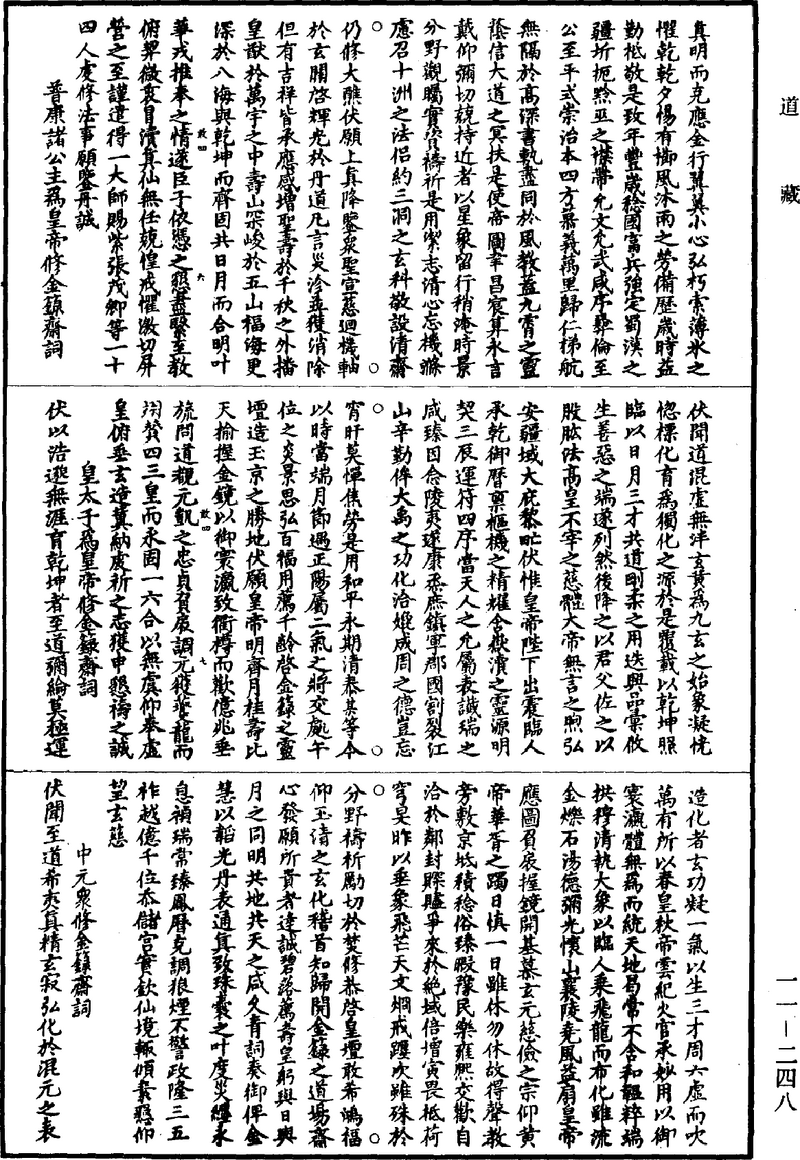 道藏
一一—二四八
真明而克應金行翼翼小心弘朽索薄氷之
懼乾乾夕惕有櫛風沐雨之勞備歷歲時益
勤祗敬是致年豐歲稔國富兵強定蜀漢之
疆圻扼黔巫之襟帶允文允武咸序彝倫至
公至平式崇治本四方慕義萬里歸仁梯航
無隔於高深書軌盡同於風教蓋九霄之靈
蔭信大道之冥扶是使帝圖聿昌宸算永言
戴仰彌切兢持近者以星象留行稍淹時景
分野觀矚實資禱祈是用潔志清心忘機滌
慮召十洲之法侶約三洞之玄科敬設清齋
仍修大醮伏願上真降鑒衆聖宣慈迴機軸
於玄關啓輝光於丹道凡言災沴並獲消除
但有吉祥皆承應感增聖壽於千秋之外播
皇猷於萬宇之中壽山罙峻於五山福海更
深於八海與乾坤而齊固共日月而合明叶
華戎推奉之情遂臣子依憑之懇盡繫至教
俯畢微衷冒瀆真仙無任兢惶戒懼激切屏
營之至謹遣得一大師賜紫張茂卿等一十
四人虔修法事願鑒丹誠
普康諸公主爲皇帝修金籙齋詞
伏聞道混虛無洋玄黃爲九玄之始象凝恍
惚標化育爲獨化之源於是覆載以乾坤照
臨以日月三才共道剛柔之用迭興品彙攸
生善惡之端遂列然後降之以君父佐之以
股肱法高皇不宰之慈體大帝無言之煦弘
安疆域大庇黎甿伏惟皇帝陛下出震臨人
承乾御曆稟樞機之精耀含嶽瀆之靈源明
契三辰運符四序當天人之允屬表讖瑞之
咸臻因念陵夷遂康烝庶鎮軍郡國割裂江
山辛勤侔大禹之功化洽雄成周之德豈忘
宵旰莫憚焦勞是用和平永期清泰某等今
以時當端月節遇正陽屬二氣之將交處午
位之炎景思弘百福用薦千齡啓金籙之靈
壇造玉京之勝地伏願皇帝明齊月桂壽比
天榆握金鏡以御寰瀛致衢樽而歡億兆垂
旒問道覯元凱之忠貞負扆調元獲夔龍而
翊贊四三皇而永固一六合以無虞仰奉虛
皇俯垂玄造冀納虔祈之志獲申懇禱之誠
皇太子爲皇帝修金籙齋詞
伏以浩邈無涯育乾坤者至道彌綸莫極運
造化者玄功凝一氣以生三才周六虛而吹
萬有所以春皇秋帝雲紀火官承妙用以御
寰瀛體無爲而統天地曷常不含和醞粹端
拱穆清執大象以臨人乘飛龍而布化雖流
金爍石湯德彌光懷山襄陵堯風益扇皇帝
應圖負扆握鏡開基慕玄元慈儉之宗仰黃
帝華胥之躅日慎一日雖休勿休故得聲教
旁敷京坻積稔俗臻殷豫民樂雍熙交歡自
洽於鄰封賝贐爭來於絕域倍增寅畏祗荷
穹旻昨以垂象飛芒天文炯戒躔次雖殊於
分野禱祈勵切於焚修恭啓皇壇敢希鴻福
仰玉清之玄化稽首知歸開金籙之道場齋
心發願所貴者達誠碧落薦壽皇躬與日與
月之同明共地共天之咸久青詞奏御俾金
慧以韜光丹表通真致珠囊之叶度災纏永
息禎瑞常臻鳳曆克調狼煙不警政隆三五
祚越億千位忝儲宮實欽仙境輒傾素懇仰
望玄慈
中元衆修金籙齋詞
伏聞至道希夷真精玄寂弘化於混元之表